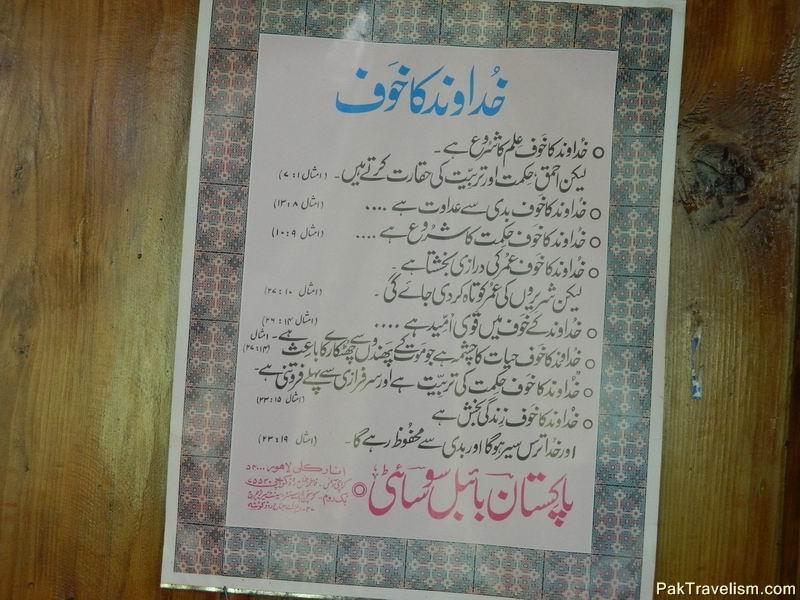 خُداوند کا خَوف
خُداوند کا خَوف عِلم کا شرُوع ہے۔
لیکن احمق حِکمت اور تربِیّت کی حقارت کرتے ہیں۔ (امثال ۱:۷)
خُداوند کا خَوف بدی سے عداوت ہے .... (امثال ۸:۱۳)
خُداوند کا خَوف حِکمت کا شرُوع ہے .... (امثال ۹:۱۰)
خُداوند کا خَوف عُمر کی درازی بخشتا ہے۔
لیکن شرِیروں کی عُمر کوتاہ کر دی جائے گی۔ (امثال ۱۰:۲۷)
خُداوند کے خَوف میں قوی اُمّید ہے .... (امثال ۱۴:۲۶)
خُداوند کا خَوف حیات کا چشمہ ہے جو مَوت کے پھندوں سے چھٹکارے کا باعث ہے۔ امثال (۱۴:۲۷)
خُداوند کا خَوف حِکمت کی تربِیّت ہے اور سرفرازی سے پہلے فروتنی ہے۔
(امثال ۱۵:۳۳)
خُداوند کا خَوف زِندگی بخش ہے
اور خُدا ترس سیر ہوگا اور بدی سے محفُوظ رہے گا۔ (امثال ۱۹:۲۳)
پاکستان بائبل سوسائٹی
انارکلی لاہور
PakTravelism.com